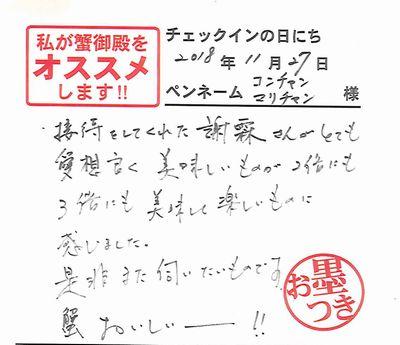 私が蟹御殿を
オススメ
します!!
チェックインの日にち
2018年11月27日
ペンネーム コンチャン
マリチャン 様
接待をしてくれた謝霖さんがとても
愛想良く美味しいものが2倍にも
3倍にも美味しく楽しいものに
感じました。
是非また伺いたいものです。
蟹おいしいー!!
お墨つき